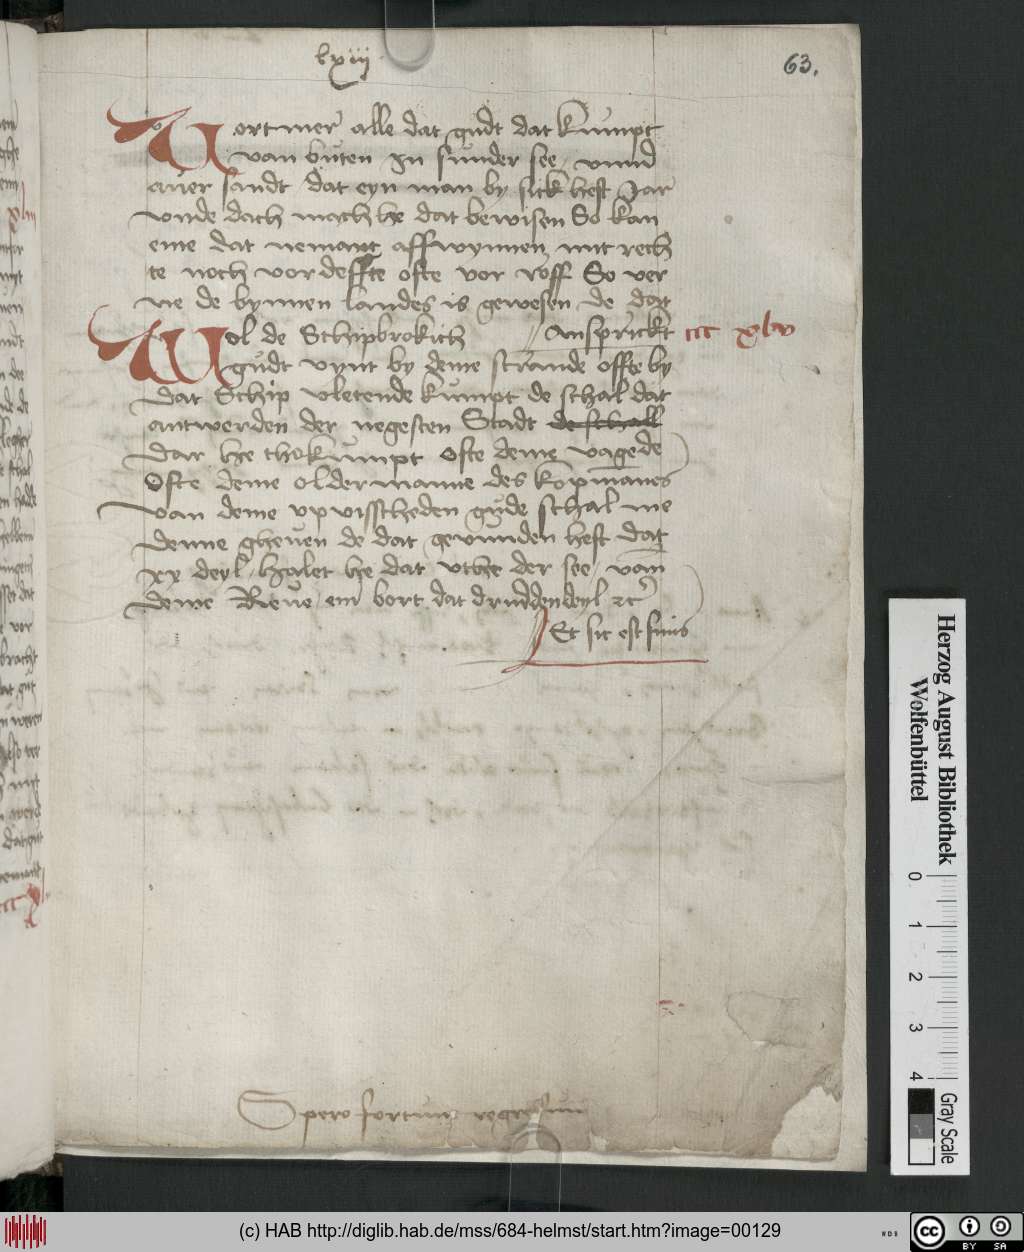 lxiij
63.
Wortmer alle dat gudt dat kumpt
van buten jn sunder see vnnd
auer sandt dat eyn man by sick heft Jar
vnde dach mach he dat bewisen So kan
eme dat nemant affwynnen mit rech
te noch vor deffte ofte vor roff So ver
ne de bynnen landes is gewesen de dat
Wol de Schipbrokich // ansprickt ccc xlv
gudt vynt by deme strande offte by
dat Schip vletende kumpt de schal dat
antwerden der negesten Stadt de schall
Dar he thokumpt ofte deme vagede
Ofte deme oldermanne des kopmanes
Van deme vpvisscheden gude schal me
Deme gheuen de dat gevunden heft dat
xx deyl halet he dat vthe der see van
deme Reue em bort dat druddendeyl etc
Et sic est finis
Spero fortune regressum
Herzog August Bibliothek
Wolfenbüttel
0 1 2 3 4
Gray Scale
(c) HAB http://diglib.hab.de/mss/684-helmst/start.htm?image=00129
WDB
CC BY SA